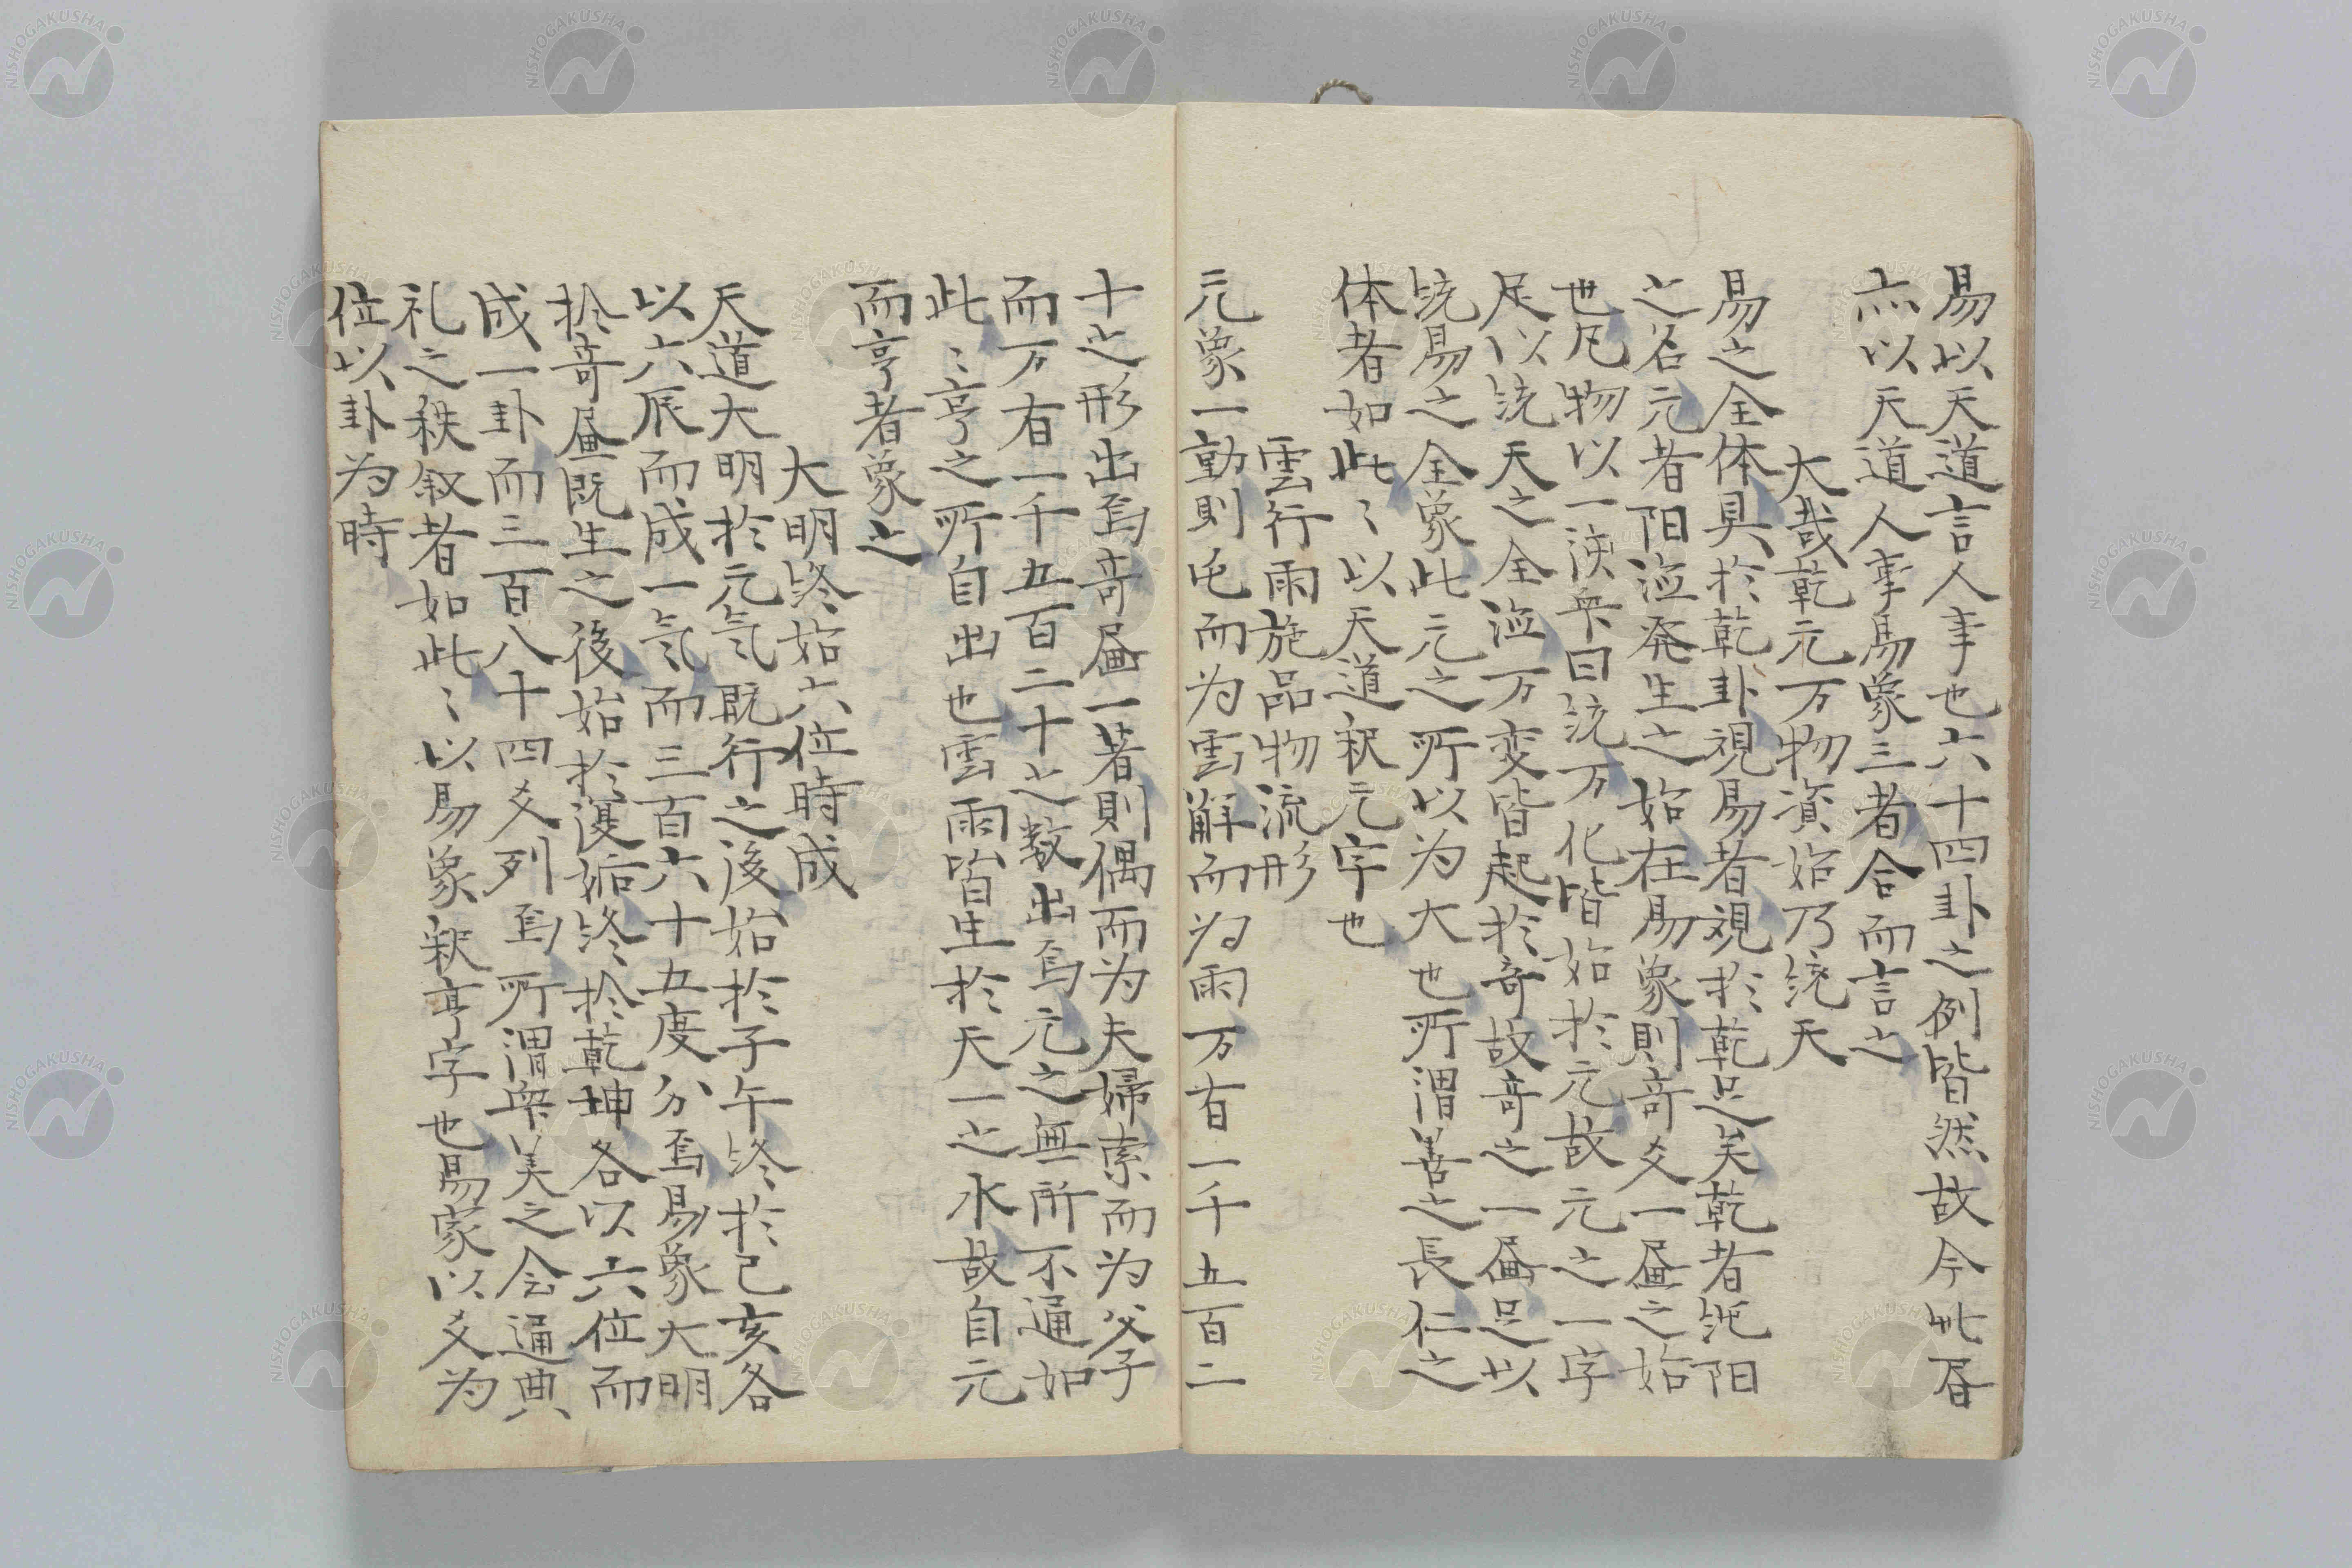 易以天道言人事也六十四卦之例皆然故今此屠
亦以天道人事易象三者合而言之
大哉乾元万物資始乃统天
易之全体具於乾卦視易者視於乾足矣乾者純阳
之名元者阳渱発生之始在易象則奇爻一畫之始
也凡物以一渱無曰统万化皆始於元故元之一字
足以统天之全渱万变皆起於奇故奇之一畫足以
统易之全象此元之所以为大也所謂善之長仁之
体者如此〻以天道釈元字也
雲行雨施品物流形
元象一動則屯而为雲解而为雨万有一千五百二
十之形出焉奇畫一著則偶而为夫婦索而为父子
而万有一千五百二十之数出焉元之無所不通如
此〻亨之所自出也雲雨皆生於天一之水故自元
而亨者象之
大明終始六位時成
天道大明於元气既行之後始於子午終於已亥各
以六辰而成一气而三百六十五度分焉易象大明
於奇畫既生之後始於復姤終於乾坤各以六位而
成一卦而三百八十四爻列焉所謂無美之会通典
礼之秩叙者如此〻以易象釈亨字也易家以爻为
位以卦为時